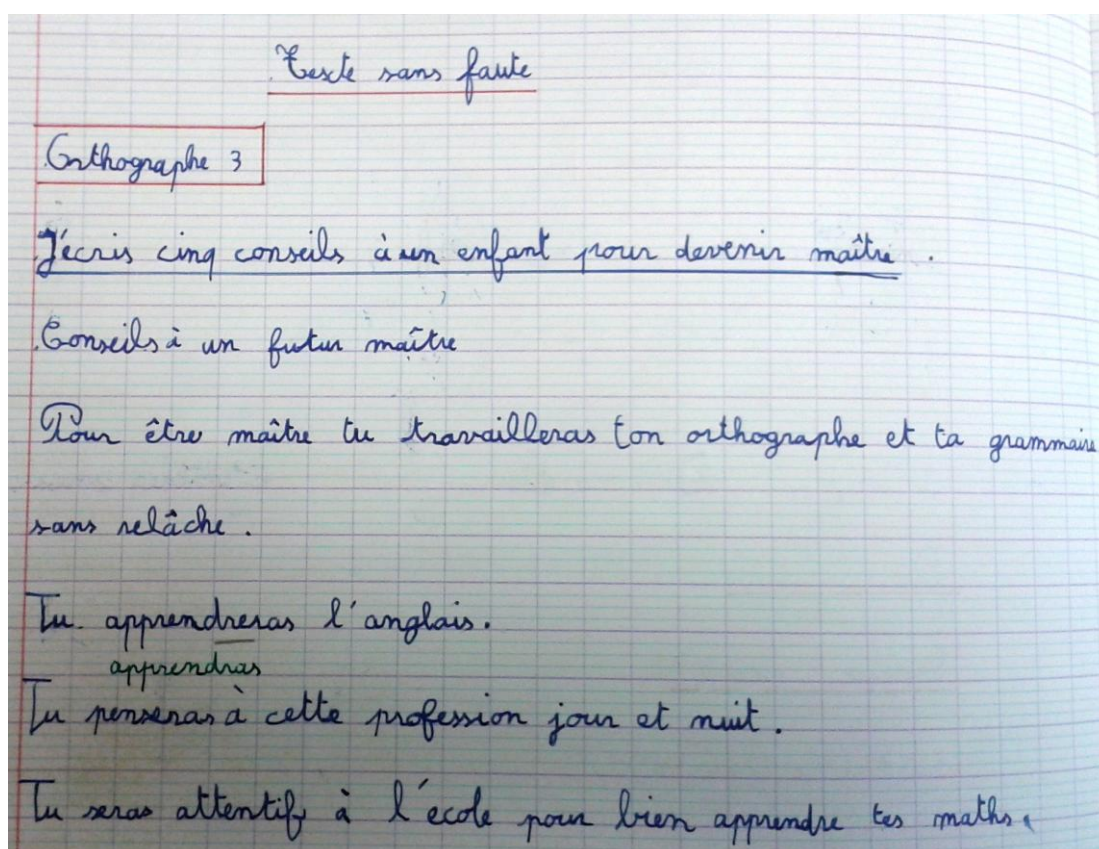 Texte sans faute
Orthographe 3
J'écris cinq conseils à un enfant pour devenir maître.
Conseils à un futur maître
Pour être maître tu travailleras ton orthographe et ta grammaire
sans relâche.
Tu apprendreras l'anglais.
apprendras
Tu penseras à cette profession jour et nuit.
Tu seras attentif à l'école pour bien apprendre tes maths.